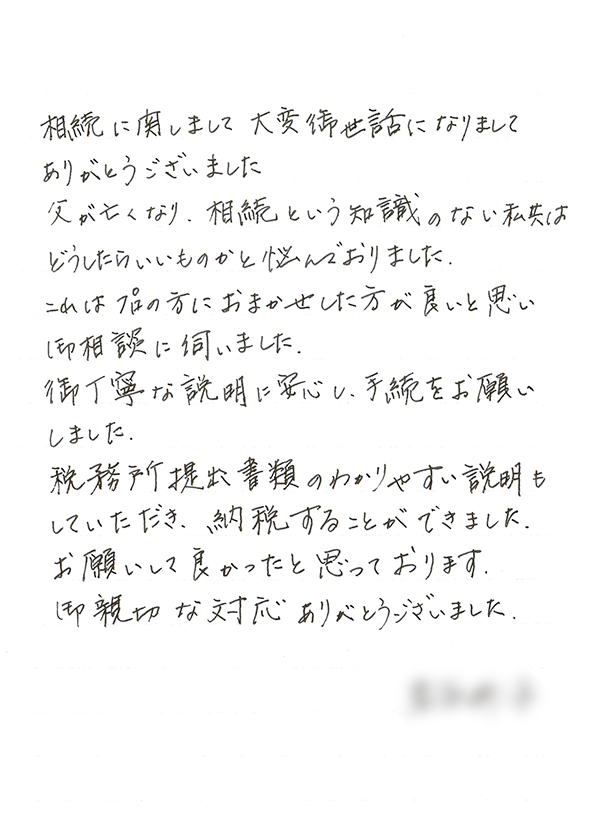 相続に関しまして 大変御世話になりまして
ありがとうございました
父が亡くなり、相続という知識のない私共は
どうしたらいいものかと悩んでおりました.
これはプロの方におまかせした方が良いと思い
御相談に伺いました.
御丁寧な説明に安心し、手続をお願い
しました.
税務所提出書類のわかりやすい説明も
していただき、納税することができました.
お願いして良かったと思っております.
御親切な対応ありがとうございました.